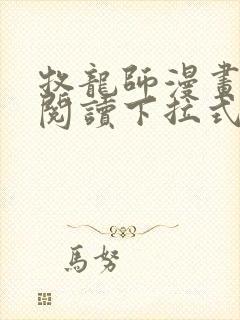 牧龍師漫畫
閱讀下拉式
馬努